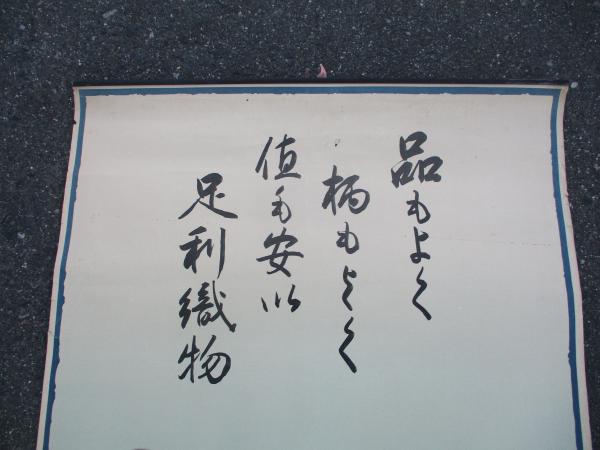 品もよく
柄もよく
値も安い
足利織物